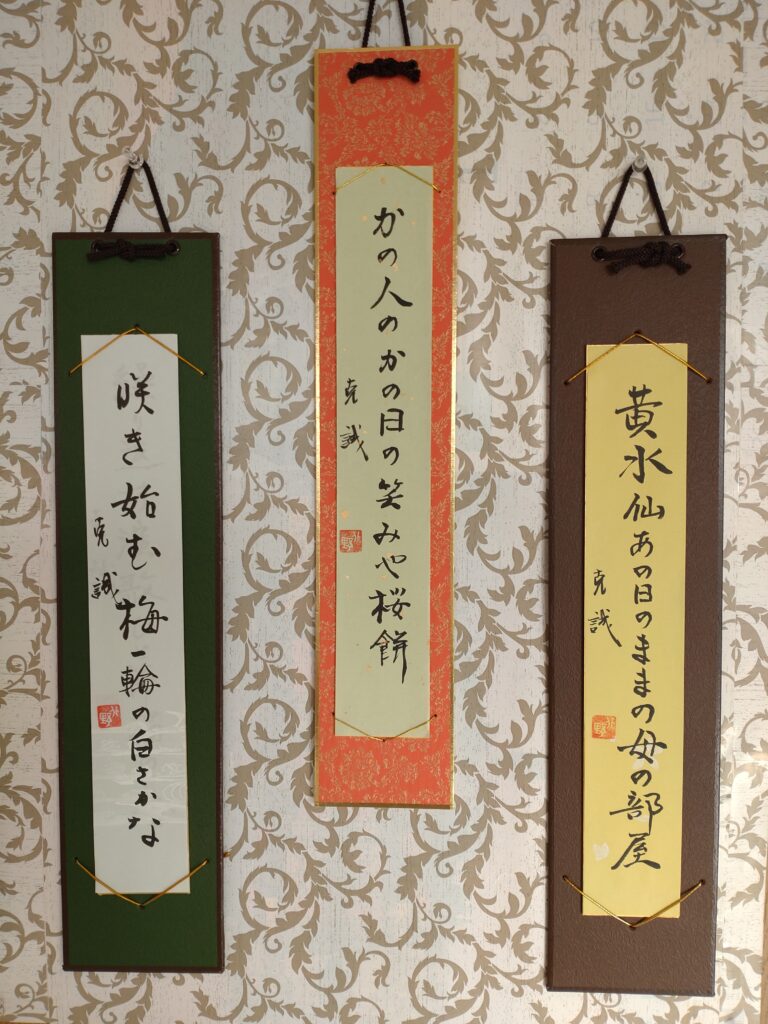 黄水仙あの日のままの母の部屋
克誠
かの人のかの日の笑みや桜餅
克誠
咲き始む梅一輪の白さかな
克誠